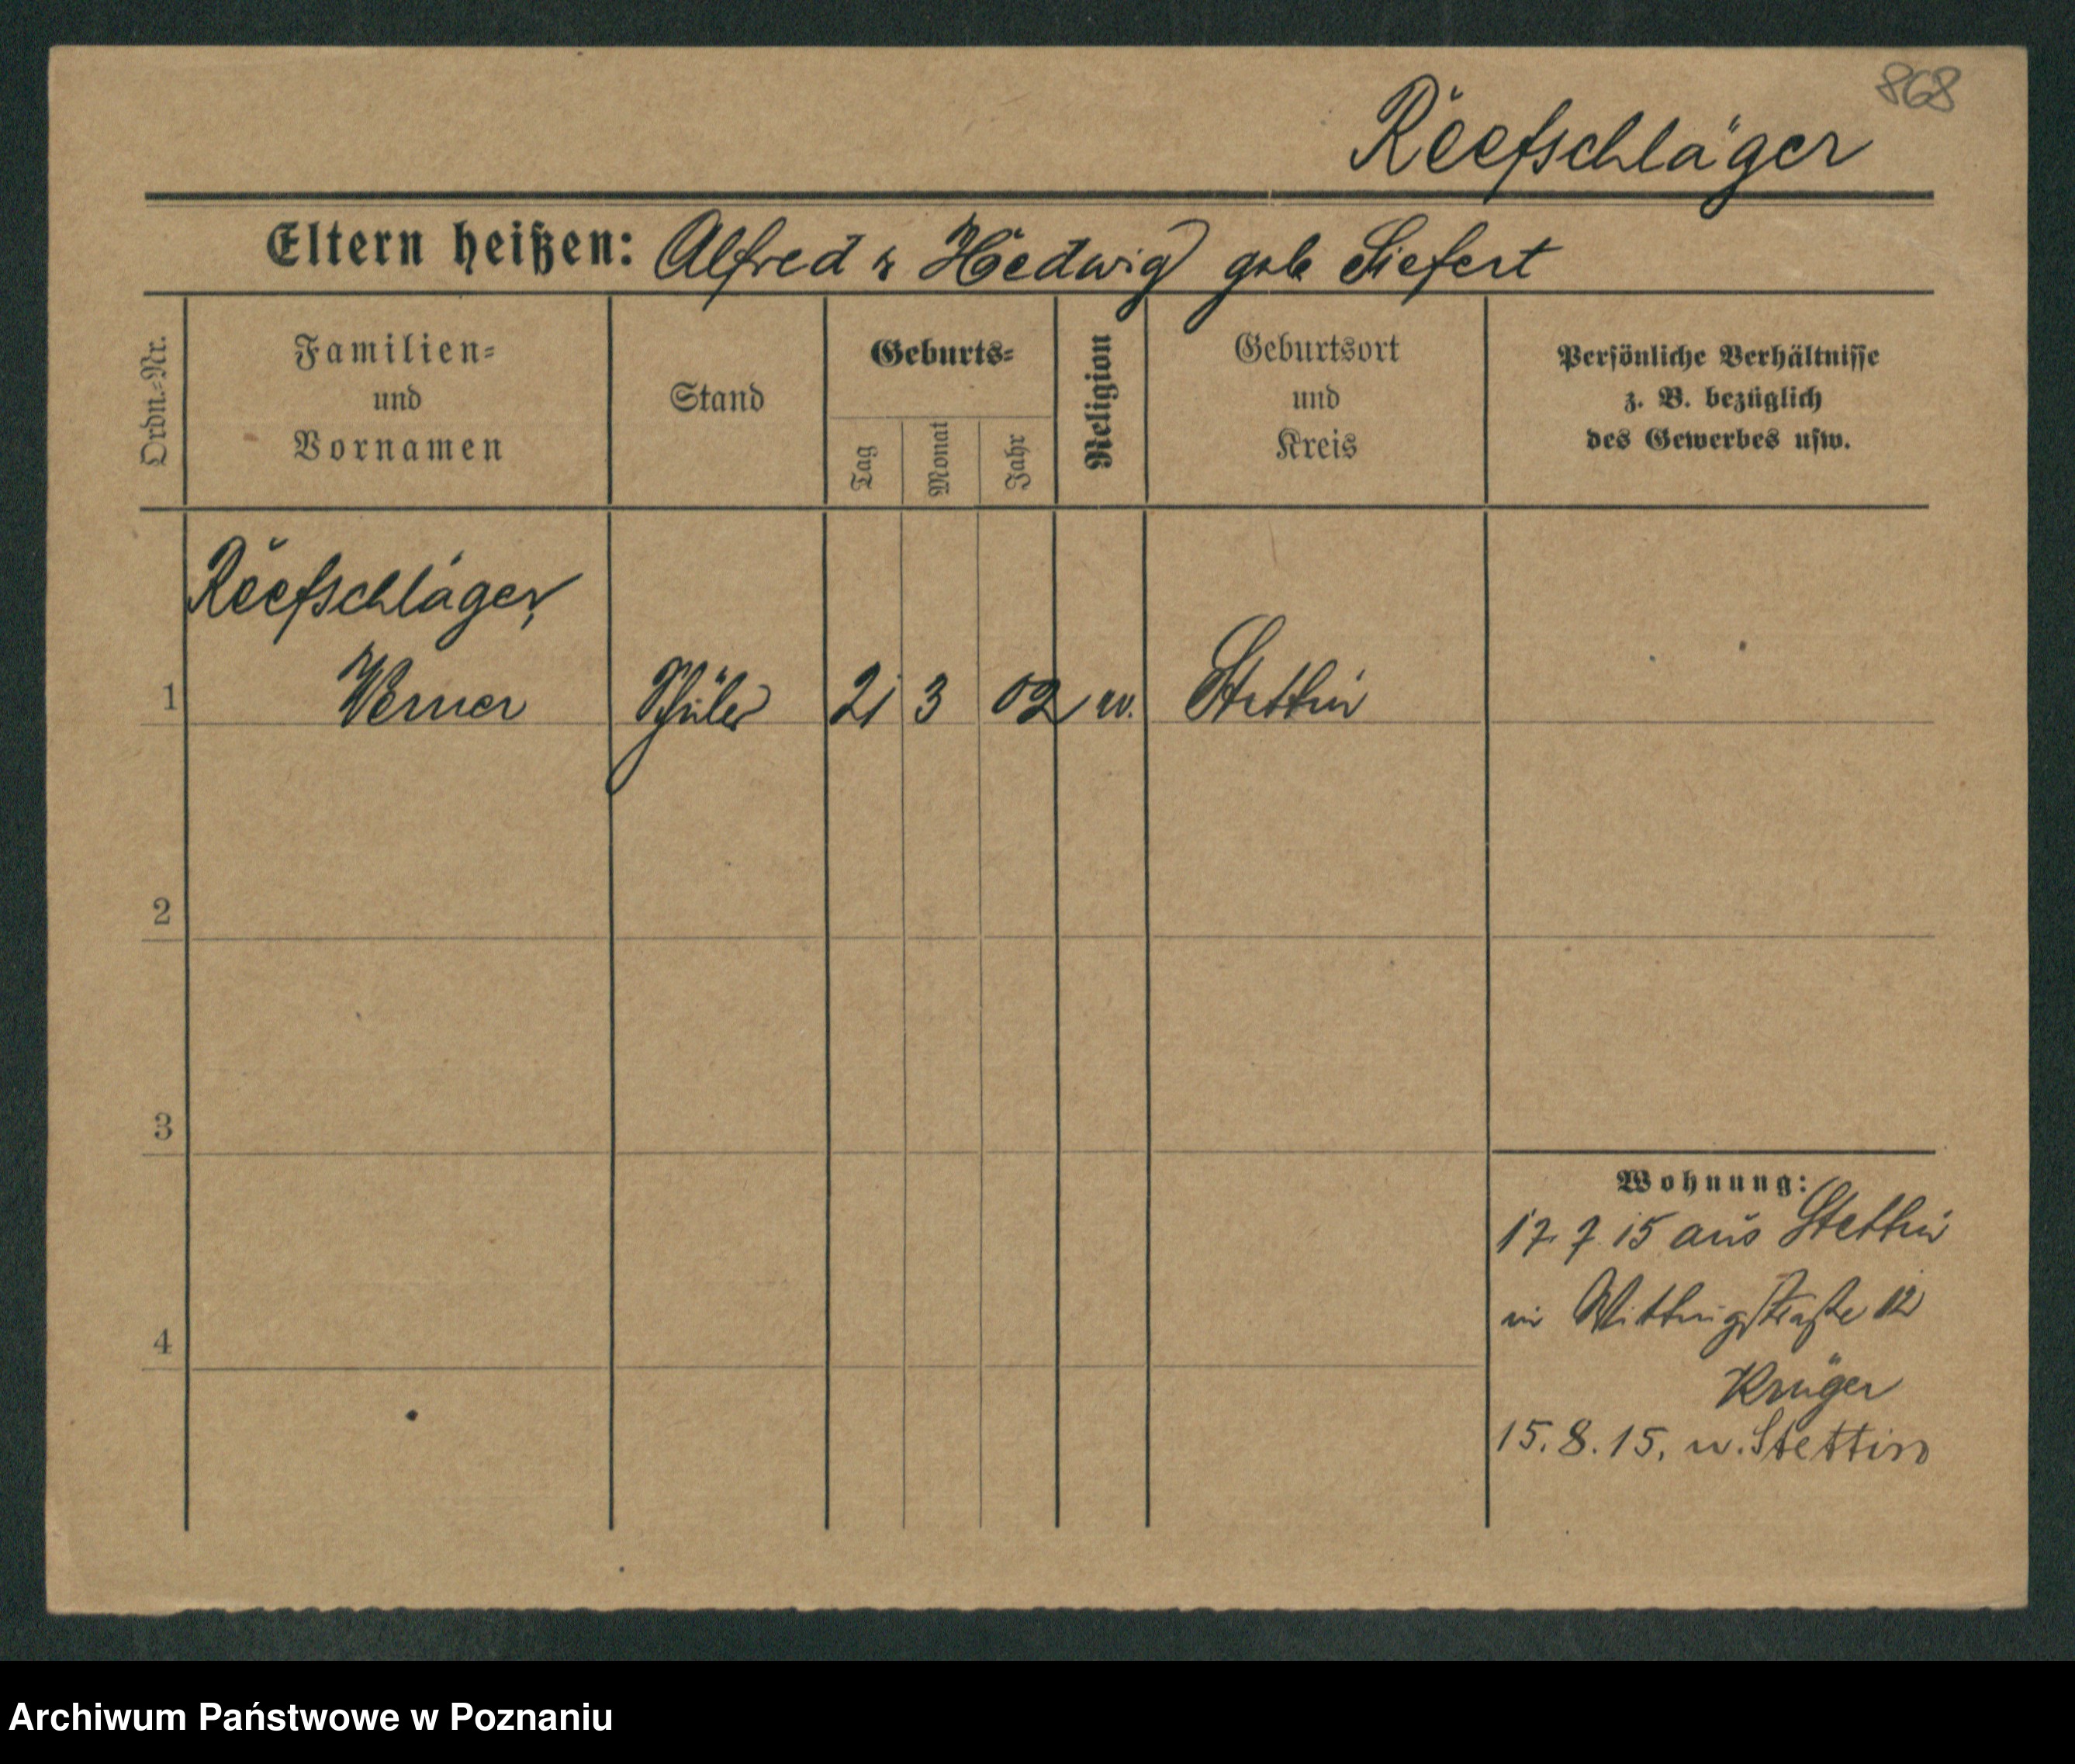 868
Reefschläger
Eltern heißen: Alfred & Hedwig geb Siefert
Ordn.-Nr.
Familien-
und
Vornamen
Stand
Geburts-
Tag
Monat
Jahr
Religion
Geburtsort
und
Kreis
Persönliche Verhältnisse
z. B. bezüglich
des Gewerbes usw.
Reefschläger,
1 Werner Schüler 21 3 02 ev. Stettin
2
3
4
Wohnung:
17.7.15 aus Stettin
in Wittingstraße 12
Krüger
15.8.15. n. Stettin
Archiwum Państwowe w Poznaniu